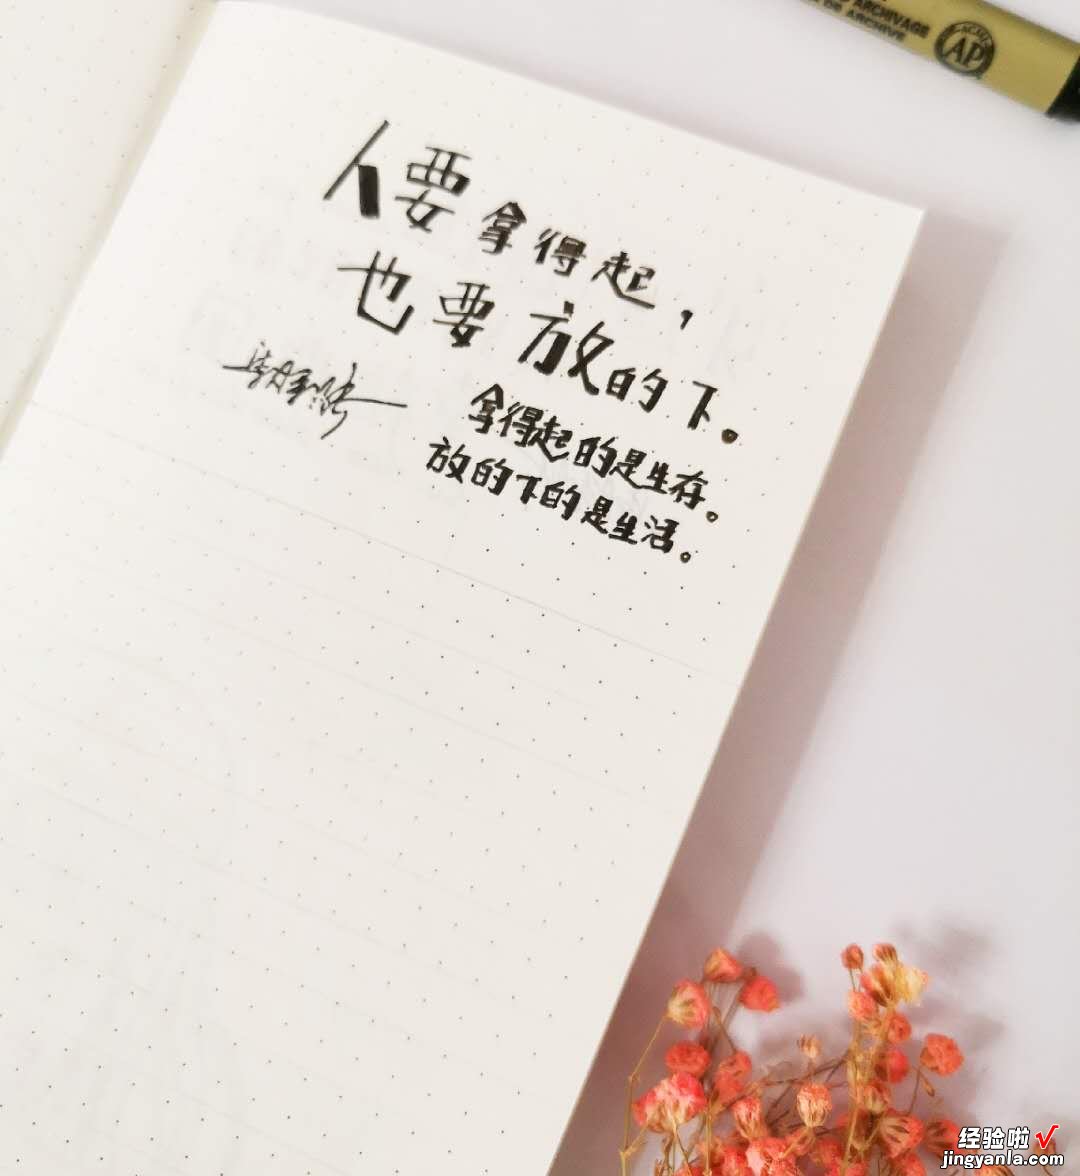 ARCHIVAGE
DE ARCHIVE
AP
人要拿得起，
也要放的下。
拿得起的是生存。
放的下的是生活。
经验啦√
jingyanla.com